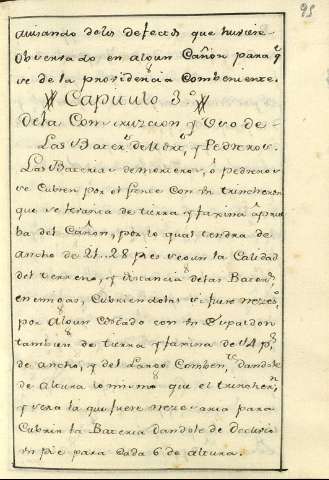 95
auisando delos defectos que huviere
Observado en algun Cañon para q̃
se de la providencia Combeniente.
Capitulo 3.º
Dela Construzcion y Uso de
Las Bater.s de Mort.s, y Pedreros.
Las Baterias de morteros, ò pedreros
se Cubren por el frente Con un trincheron
que se lebanta de tierra y faxina à prue
ba del Cañon, por lo qual tendra de
ancho de 24..28 pies segun la Calidad
del terreno, y distancia delas Bater.s
enemigas, Cubriendolas si fuere nezes.º
por algun Costado con un Espaldon
tambien de tierra y faxina de 14 p.s
de ancho, y del Largo Comben.te dandole
de Altura lo mismo que el trincher.n
y sera la que fuere nezesaria para
Cubrir la Bateria dandole de Declivio
un pie para cada 6 de altura.